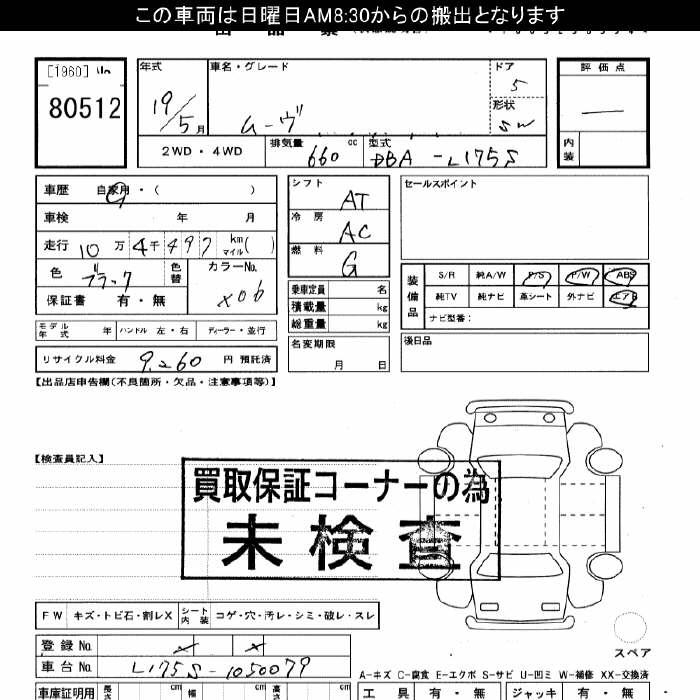 この車両は日曜日AM8:30からの搬出となります
[1960]
80512
年式
車名・グレード
ドア
評価点
19/5月
ムーヴ
5
形状
SW
内装
2WD・4WD
排気量
660
cc
型式
DBA-L175S
車歴 自家用・( )
車検 年 月
走行 10万4千497km マイル( )
色 ブラック 色替 カラーNo.
X06
保証書 有・無
モデル年式 年 ハンドル 左・右 ディーラー・並行
リサイクル料金 9,260 円 預託済
シフト AT
冷房 AC
燃料 G
乗車定員 名
積載量 kg
総重量 kg
名変期限
月 日
セールスポイント
装備品
S/R 純A/W P/S P/W ABS
純TV 純ナビ 革シート 外ナビ エアB
ナビ型番:
後日品
【出品店申告欄(不良箇所・欠品・注意事項等)】
【検査員記入】
買取保証コーナーの為
未検査
FW キズ・トビ石・割レX シート内装 コゲ・穴・汚レ・シミ・破レ・スレ
スペア
登録No.
車台No. L175S-1050079
A-キズ C-腐食 E-エクボ S-サビ U-凹ミ W-補修 XX-交換済
車庫証明用 長さ cm 幅 cm 高さ cm
工具 有・無 ジャッキ 有・無